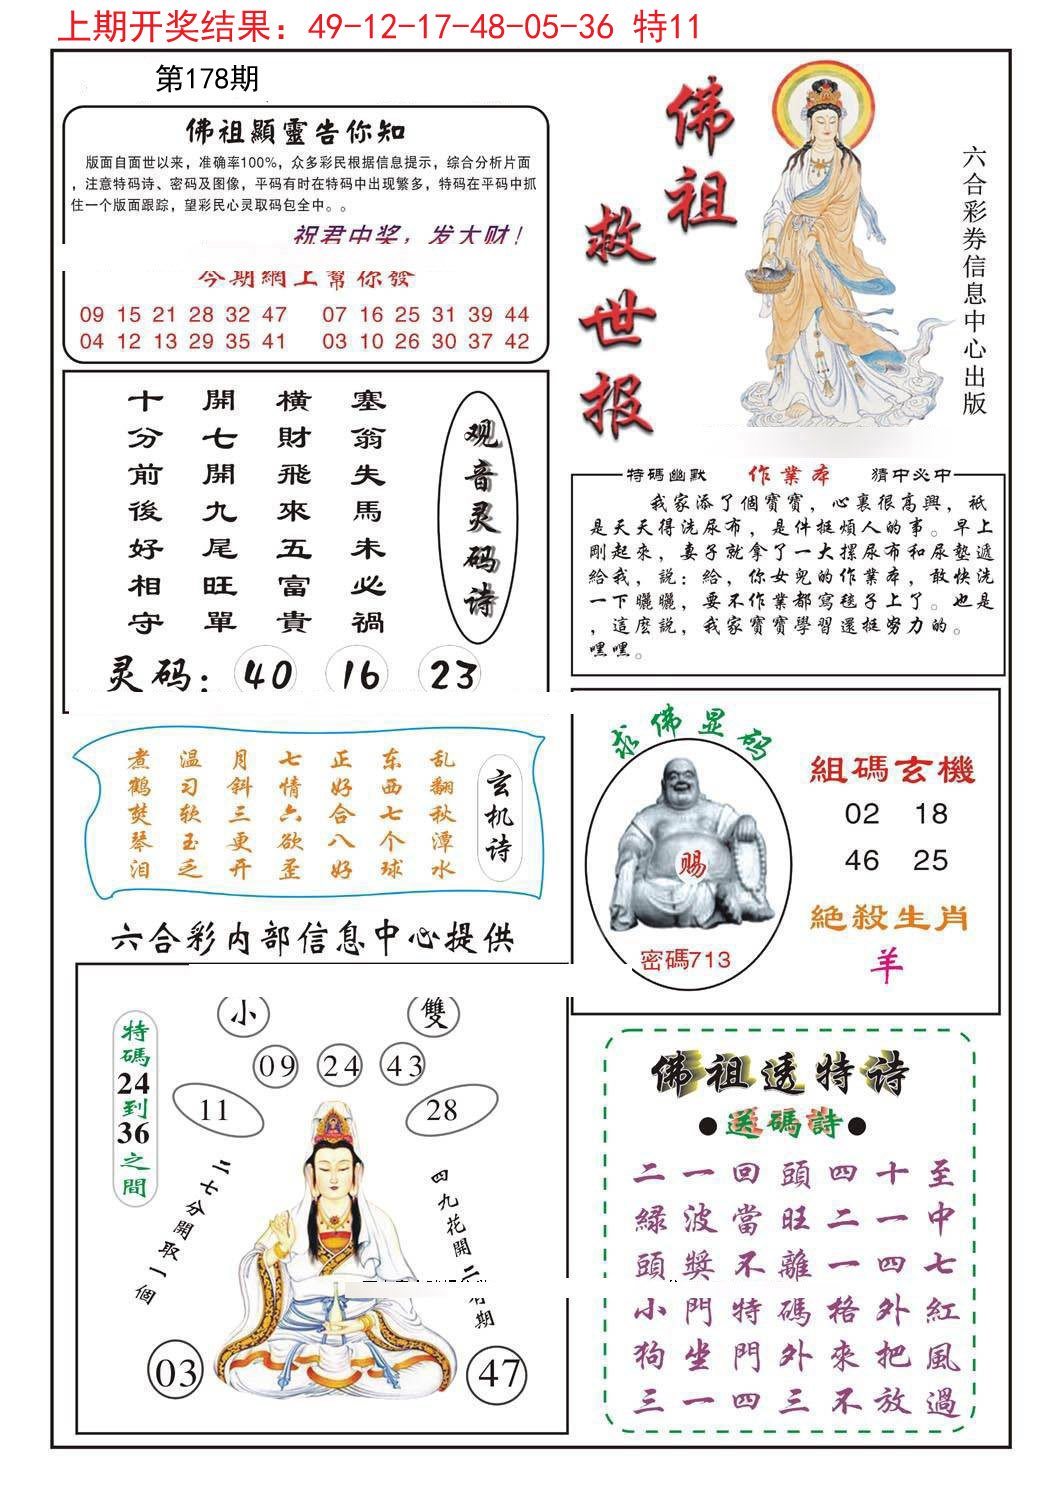 上期开奖结果：49-12-17-48-05-36 特11
第178期
佛祖顯靈告你知
版面自面世以来，准确率100%，众多彩民根据信息提示，综合分析片面
，注意特码诗、密码及图像，平码有时在特码中出现繁多，特码在平码中抓
住一个版面跟踪，望彩民心灵取码包全中。。
祝君中奖，发大财！
今期網上幫你發
09 15 21 28 32 47 07 16 25 31 39 44
04 12 13 29 35 41 03 10 26 30 37 42
佛祖
救世报
六合彩券信息中心出版
观音灵码诗
塞翁失馬未必禍
橫財飛來五富貴
開七開九尾旺單
十分前後好相守
灵码：40 16 23
特碼幽默 作業本 猜中必中
我家添了個寶寶，心裏很高興，祇
是天天得洗尿布，是件挺煩人的事。早上
剛起來，妻子就拿了一大摞尿布和尿墊遞
給我，説：給，你女兒的作業本，敢快洗
一下曬曬，要不作業都寫毯子上了。也是
，這麼説，我家寶寶學習還挺努力的。
嘿嘿。
玄机诗
乱翻秋潭水
东西七个球
正好合八好
七情六欲歪
月斜三更开
温习软玉乏
煮鹤焚琴泪
求佛显码
赐
密碼713
組碼玄機
02 18
46 25
絕殺生肖
羊
六合彩内部信息中心提供
小 雙
09 24 43
11 28
特碼24到36之間
二七分開取一個
四九花開二 期
03 47
佛祖透特诗
●送碼詩●
二一回頭四十至
緑波當旺二一中
頭獎不離一四七
小門特碼格外紅
狗坐門外來把風
三一四三不放過